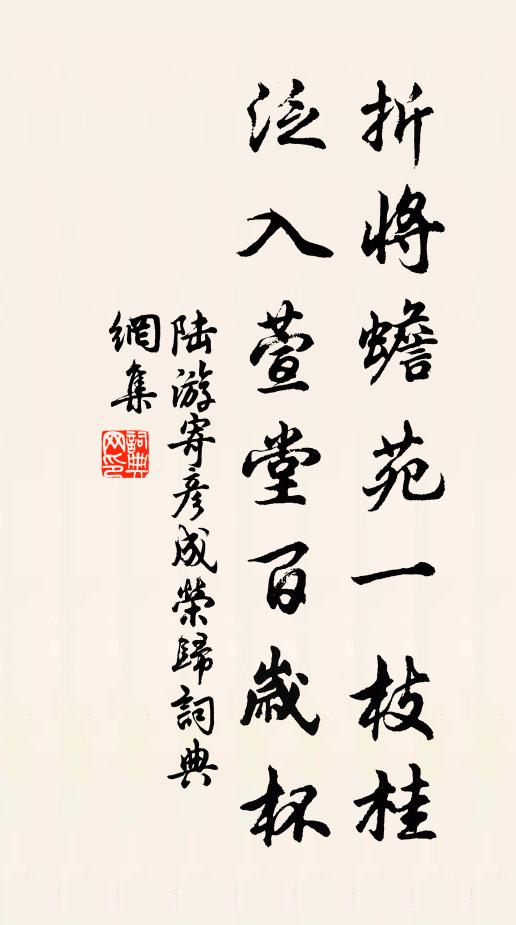 折將蟾苑一枝桂
泛入萱堂百歲杯
陆游寄彥成榮歸詞典
網集
詞典
网印